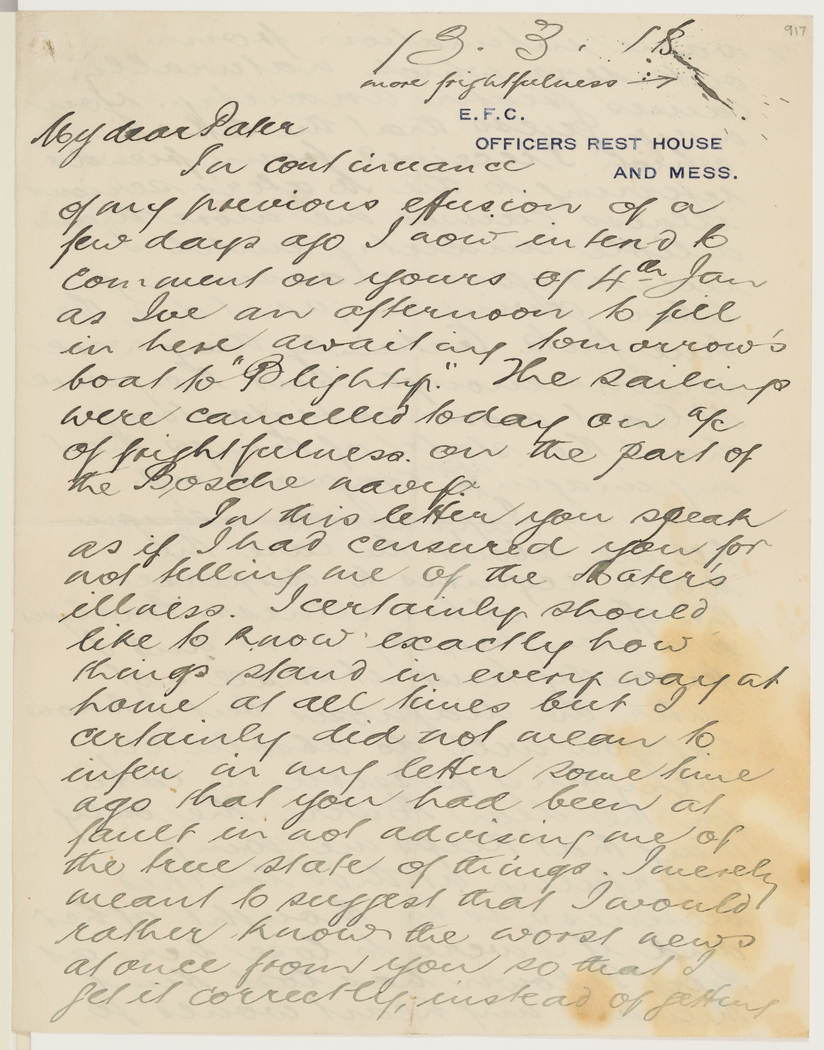 917
13. 3. 18
more frightfulness →
E.F.C.
OFFICERS REST HOUSE
AND MESS.
My dear Pater
In continuance
of my previous effusion of a
few days ago I now intend to
comment on yours of 4th Jan
as Ive an afternoon to fill
in here awaiting tomorrow's
boat to "Blighty." The sailings
were cancelled today on a/c
of frightfulness. on the part of
the Bosche navy.
In this letter you speak
as if I had censured you for
not telling me of the Mater's
illness. I certainly should
like to know exactly how
things stand in every way at
home at all times but I
certainly did not mean to
infer in my letter some time
ago that you had been at
fault in not advising me of
the true state of things. I merely
meant to suggest that I would
rather know the worst news
at once from you so that I
get it correctly, instead of getting